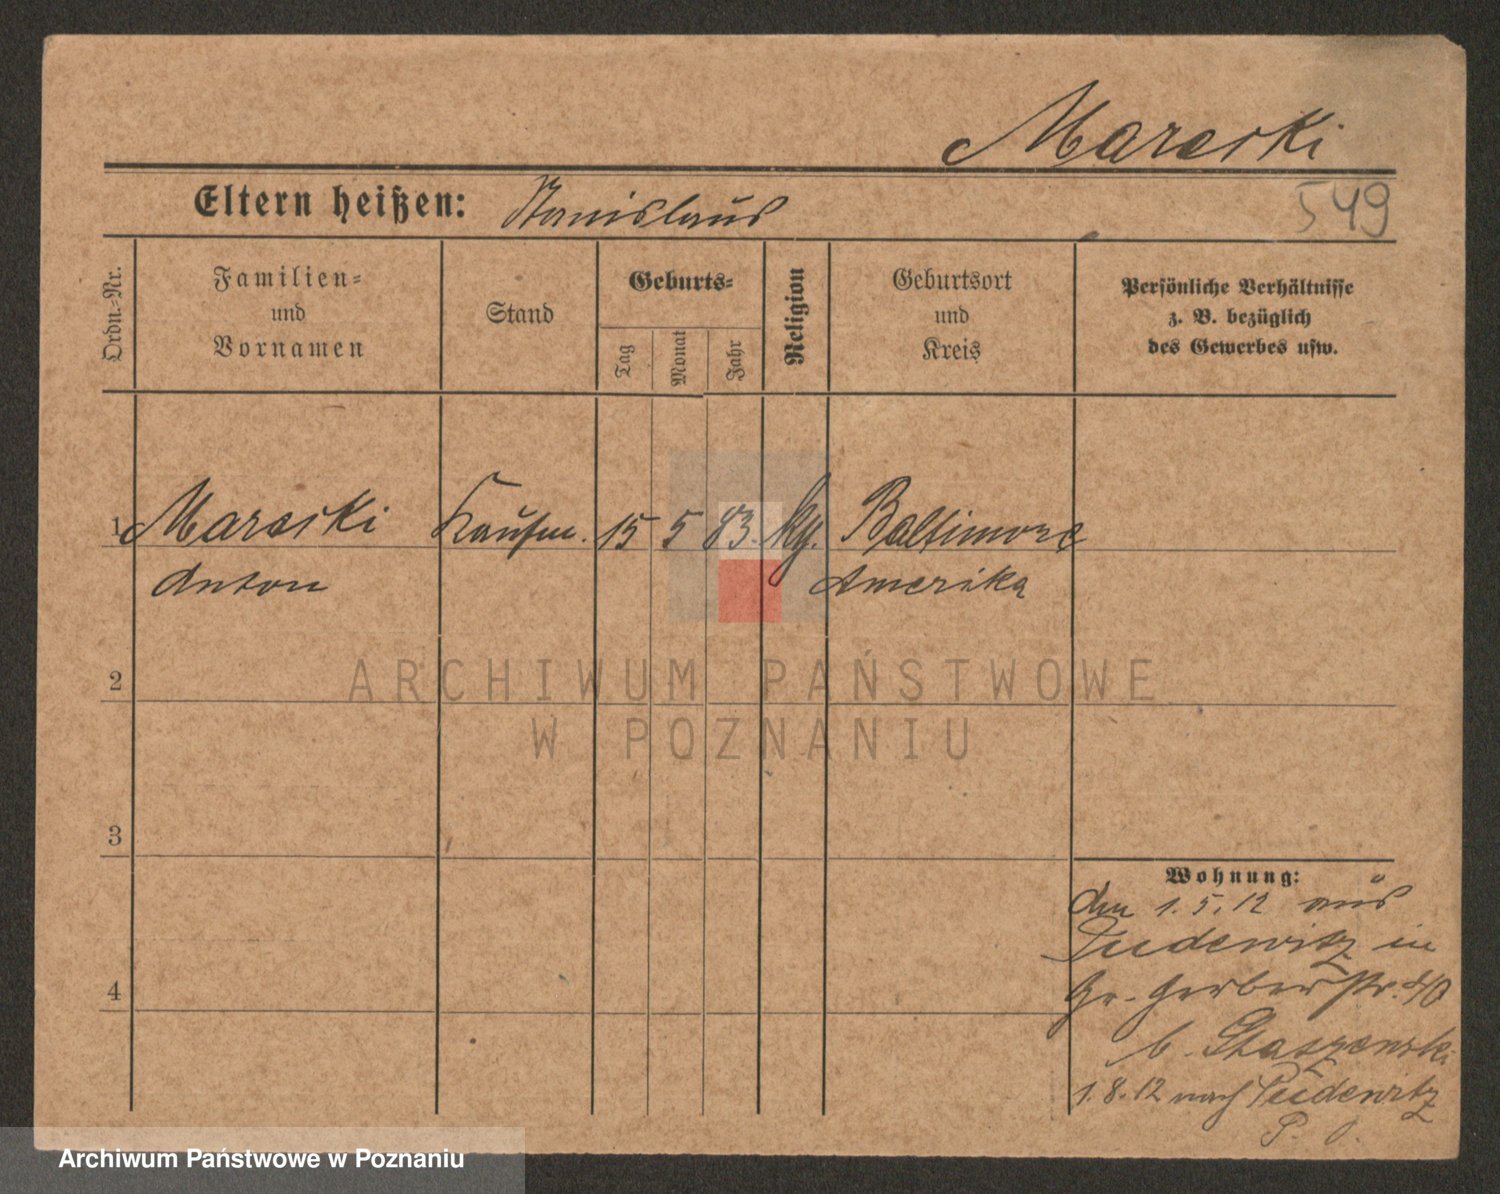 Mareski
Eltern heißen: Stanislaus
549
Ordn.-Nr.
Familien-
und
Vornamen
Stand
Geburts-
Tag
Monat
Jahr
Religion
Geburtsort
und
Kreis
Persönliche Verhältnisse
z. B. bezüglich
des Gewerbes usw.
1 Mareski Kaufm. 15 5 83. kg. Baltimore
Anton Amerika
2
ARCHIWUM PAŃSTWOWE
W POZNANIU
3
Wohnung:
den 1.5.12 aus
Pudewitz in
Gr. Gerberstr. 40
b.
1.8.12 nach Pudewitz
4
Archiwum Państwowe w Poznaniu